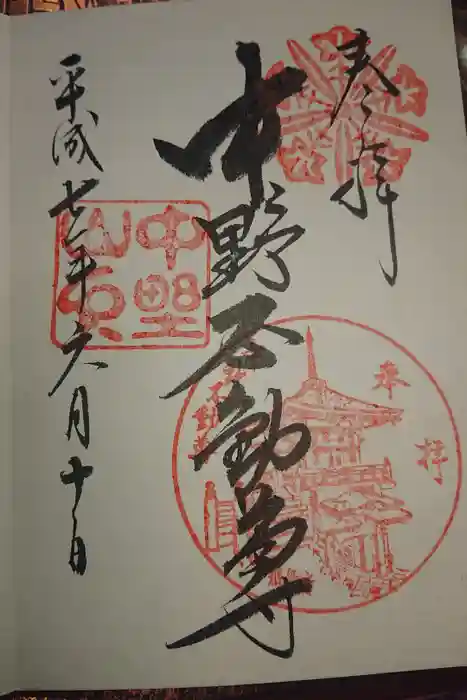 奉拝
中野不動尊
平成七年六月十日
中野
奉拝